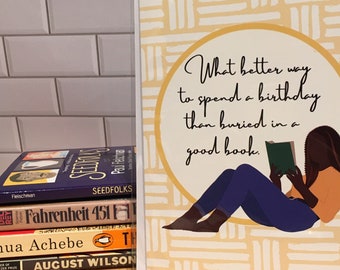 What better way
to spend a birthday
than buried in a
good book.
SEEDFOLKS
Paul Fleischman
Fleischman
SEEDFOLKS
Fahrenheit 451
ua Achebe
AUGUST WILSON